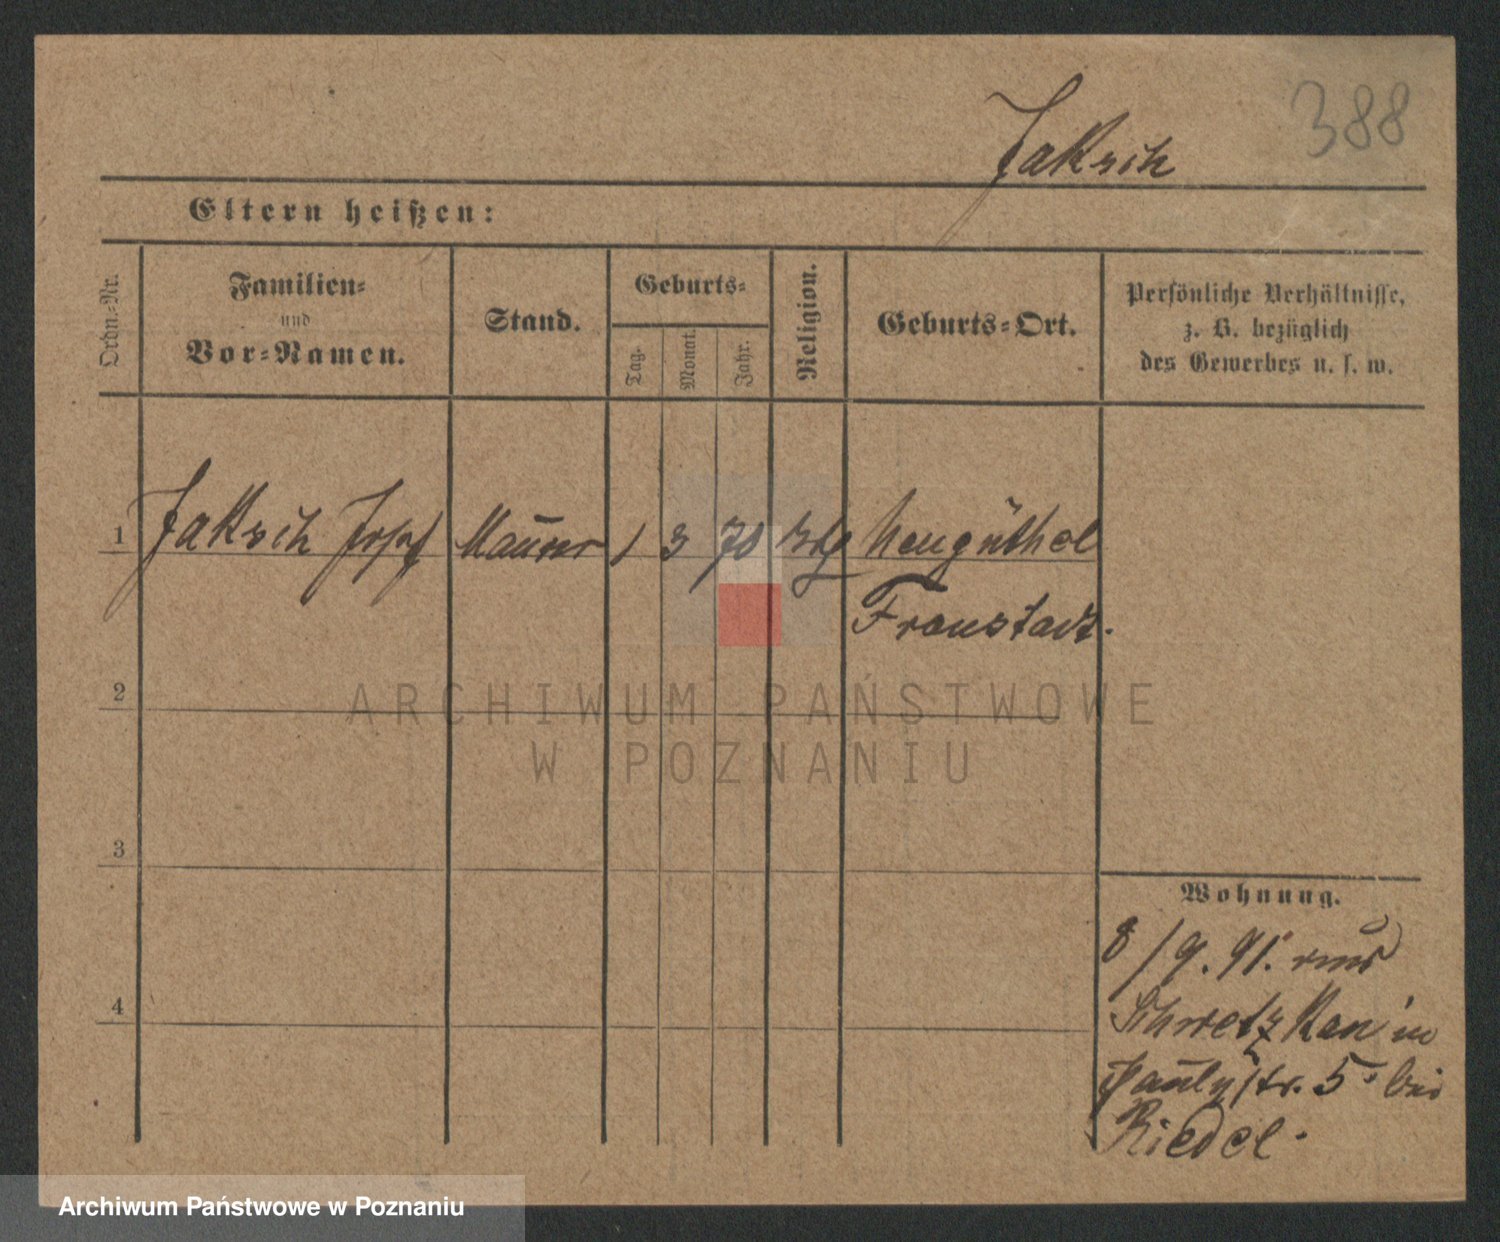 388
Jaksch
Eltern heißen:
Ordn.-Nr.
Familien-
und
Vor-Namen.
Stand.
Geburts-
Tag.
Monat.
Jahr.
Religion.
Geburts-Ort.
Persönliche Verhältnisse,
z. B. bezüglich
des Gewerbes u. s. w.
1 Jaksch Josef Maurer 1 3 70 Neugüthel
Fraustadt.
2
ARCHIWUM PAŃSTWOWE
W POZNANIU
3
Wohnung.
8/9. 91. aus
Schwetzkau in
Paulystr. 5. bei
4
Riedel.
Archiwum Państwowe w Poznaniu